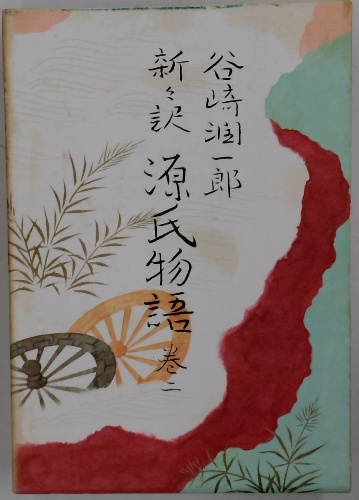 谷崎潤一郎
新々訳 源氏物語 巻二